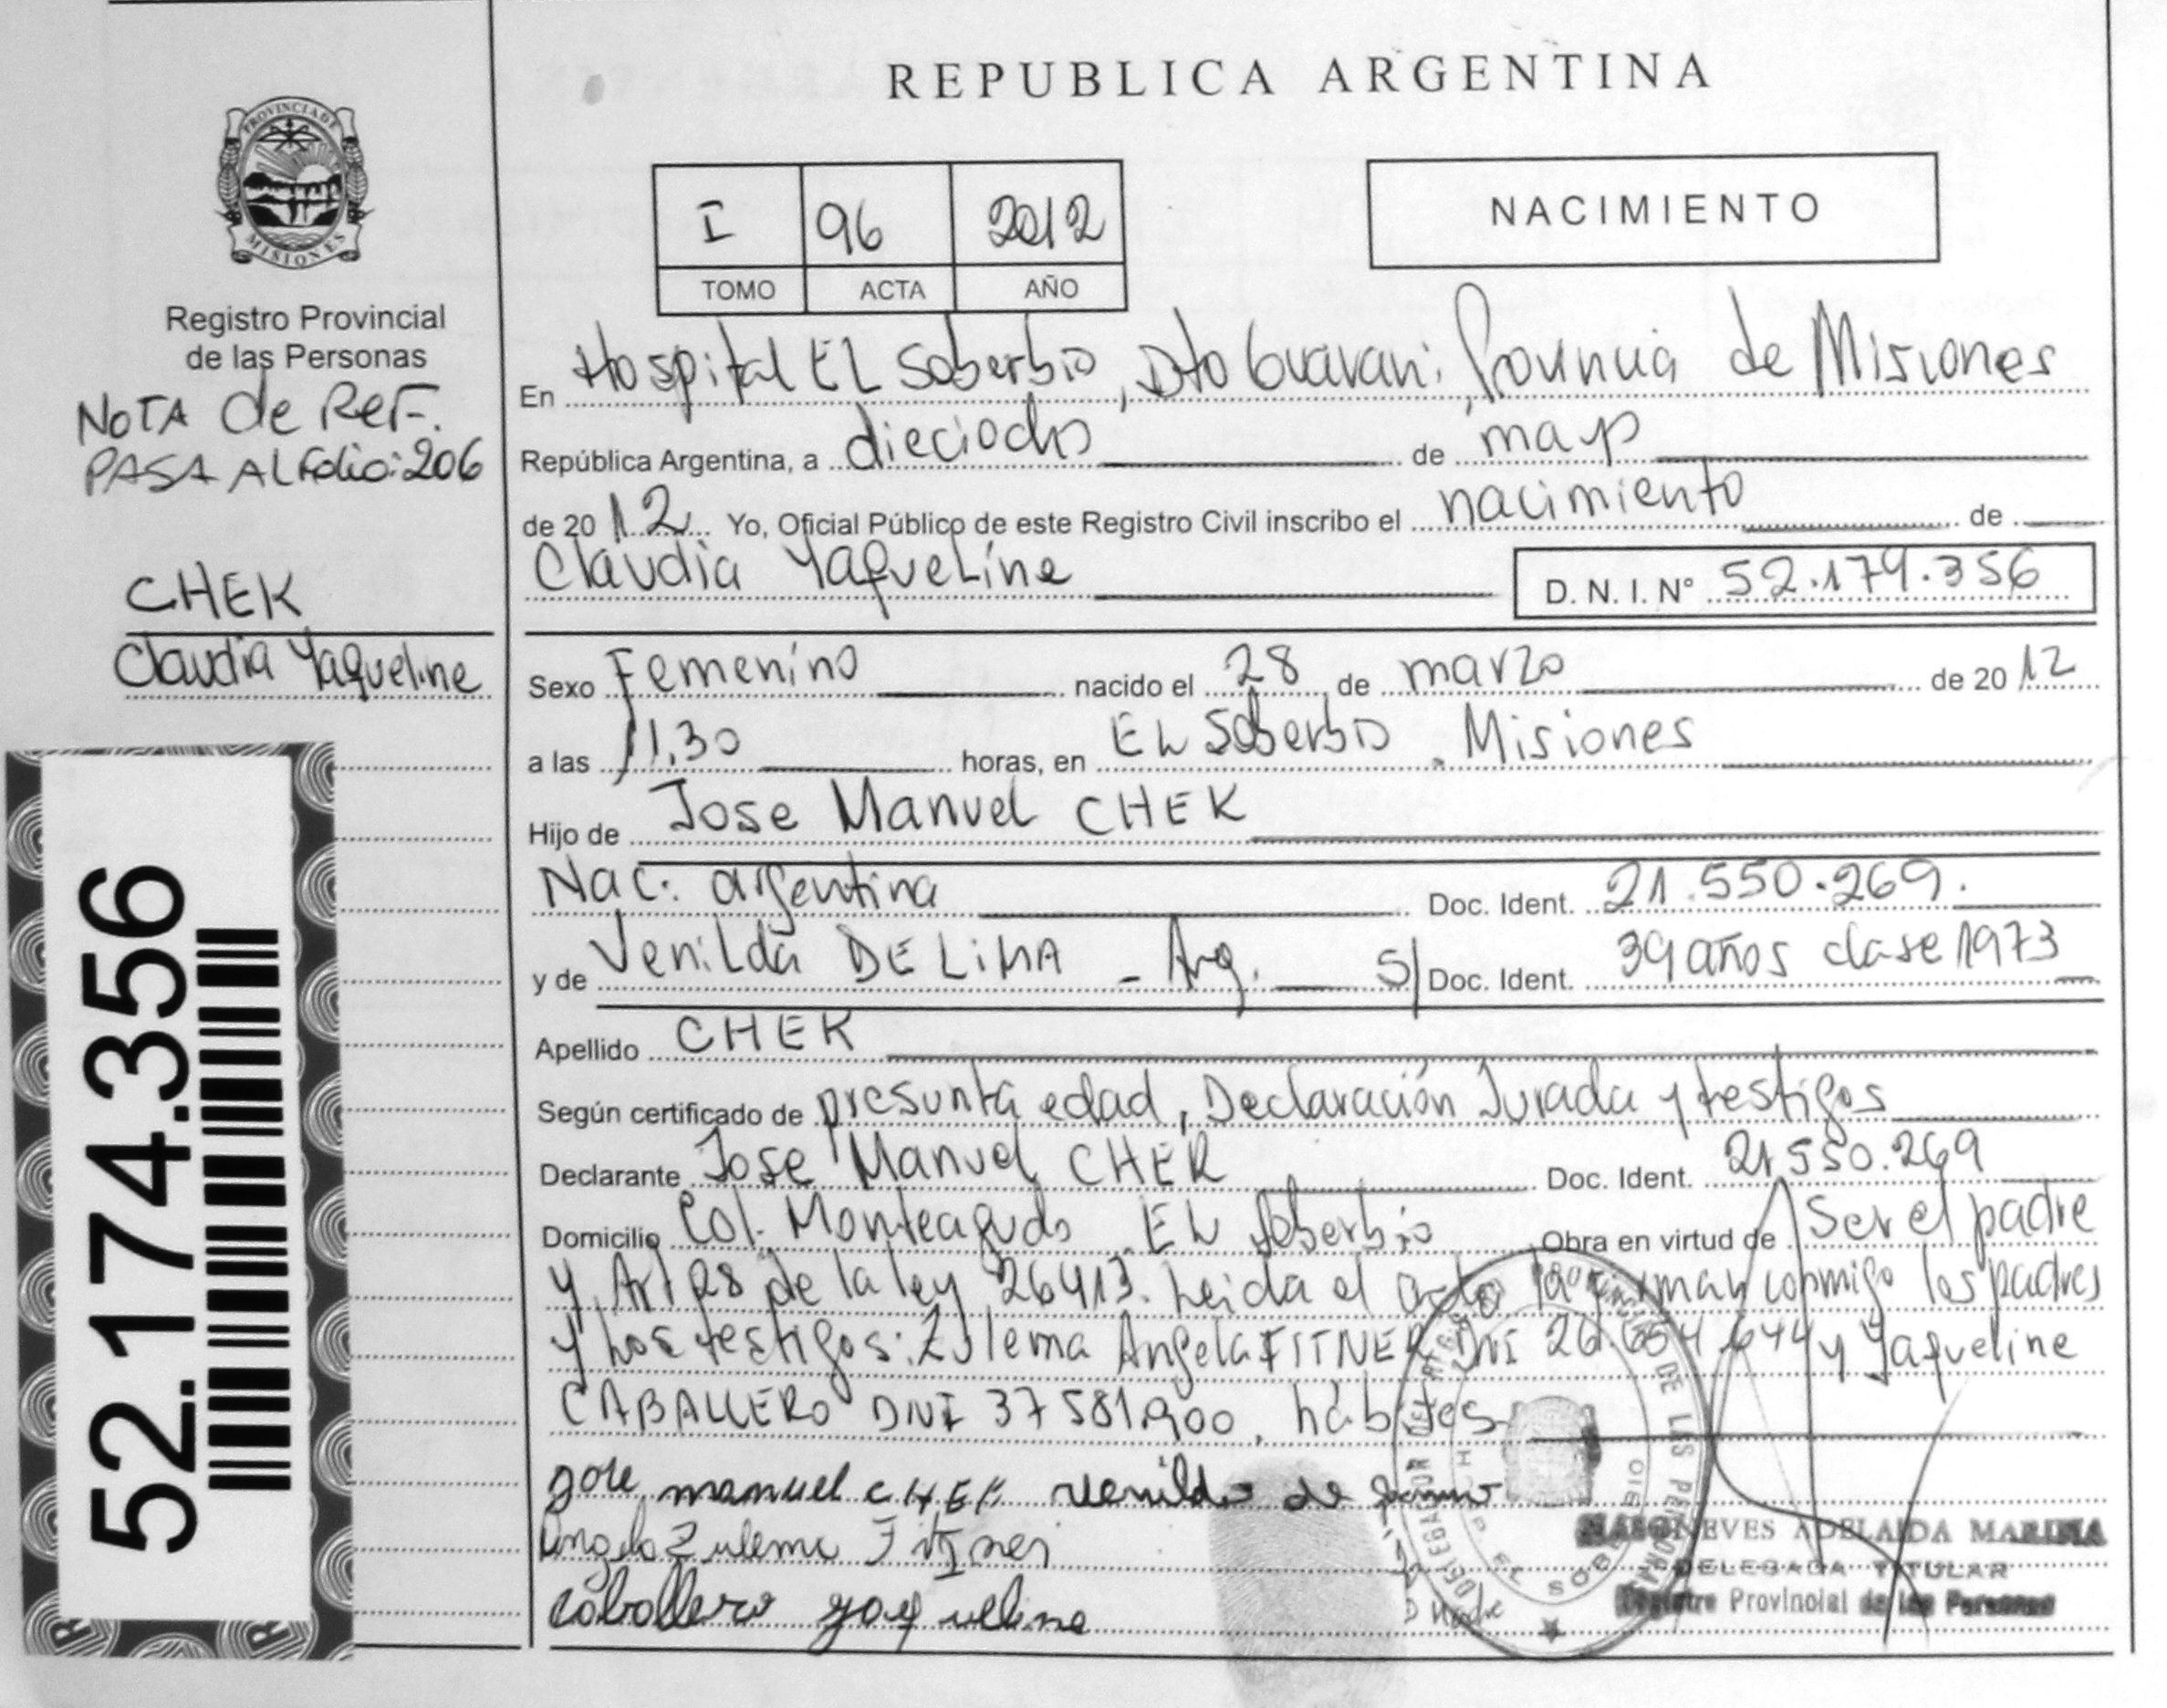 REPUBLICA ARGENTINA
PROVINCIA DE
MISIONES
Registro Provincial
de las Personas
NOTA de REF.
PASA AL Folio: 206
CHEK
Claudia Yaqueline
52.174.356
I 96 2012
TOMO ACTA AÑO
NACIMIENTO
En Hospital EL Soberbio, Dto Guarani, Provincia de Misiones
República Argentina, a dieciocho de mayo
de 20 12 Yo, Oficial Público de este Registro Civil inscribo el nacimiento de
Claudia Yaqueline D. N. I. N° 52.174.356
Sexo Femenino nacido el 28 de marzo de 20 12
a las 11,30 horas, en EL Soberbio . Misiones
Hijo de Jose Manuel CHEK
Nac: argentina Doc. Ident. 21.550.269.
y de Venilda DE LIMA - Arg. S/ Doc. Ident. 39 años clase 1973
Apellido CHEK
Según certificado de presunta edad, Declaración Jurada y testigos
Declarante Jose Manuel CHEK Doc. Ident. 21.550.269
Domicilio Col. Monteagudo EL Soberbio Obra en virtud de Ser el padre
y Art 28 de la ley 26413. Leida el acta la firman conmigo los padres
y Los testigos: Zulema Angela FITNER DNI 26.654.644 y Yaqueline
CABALLERO DNI 37581.900, hábiles
Jose manuel CHEK venilda de
Angela Zulema
Caballero yaqueline
EL SOBERBIO
MARIA
DELEGADA TITULAR
Registro Provincial de las Personas